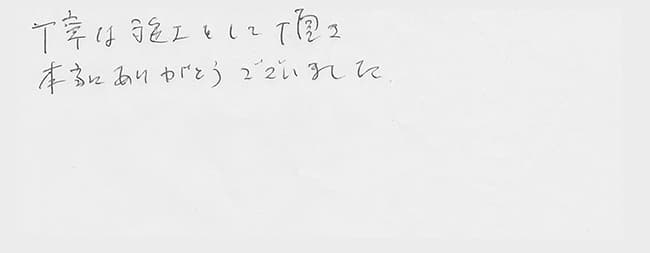 丁寧は施工をして頂き
本当にありがとうございました